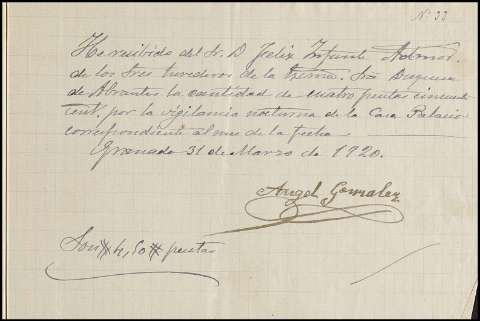 Nº 33
He recibido del Sr. D. Felix Infante Admor.
de los tres herederos de la Excma. Sra Duquesa
de Abrantes la cantidad de cuatro pesetas cincuenta
cent. por la vigilancia nocturna de la Casa Palacio
correspondiente al mes de la fecha
Granada 31 de Marzo de 1920.
Angel Gonzalez
Son # 4,50 # pesetas